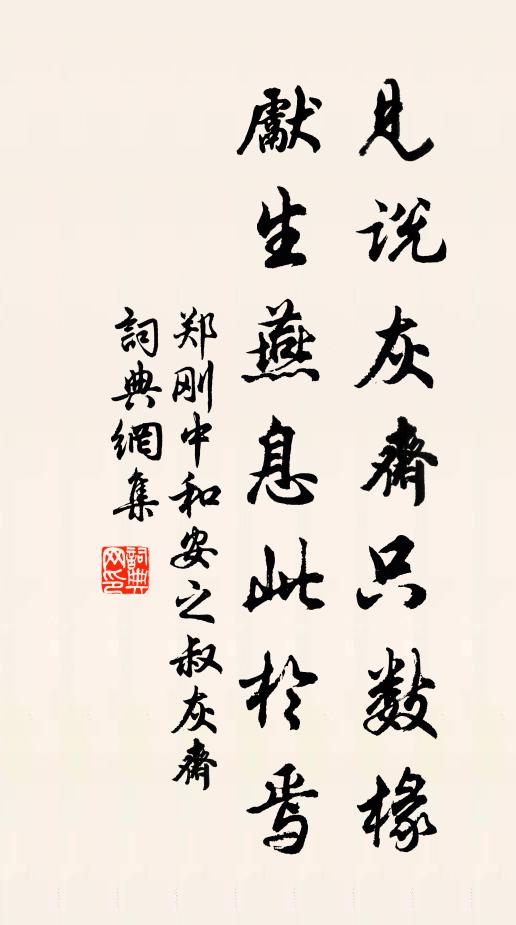 见说灰齋只数椽
献生燕息此於焉
郑刚中和安之叔灰齋
詞典網集
詞典网印